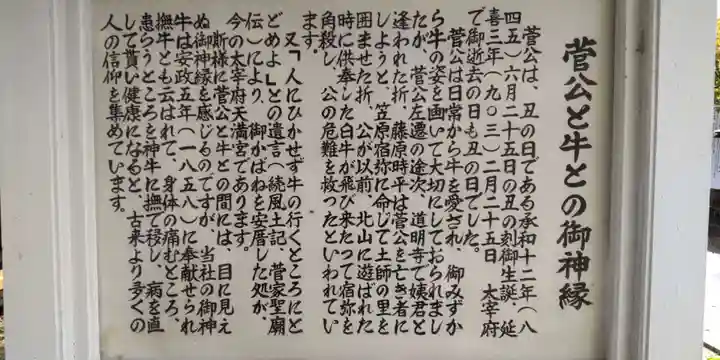 菅公と牛との御神縁
菅公は、丑の日である承和十二年(八
四五)六月二十五日の丑の刻御生誕、延
喜三年(九〇三)二月二十五日 太宰府
で御逝去の日も丑の日でした。
菅公は日常から牛を愛され、御みずか
ら牛の姿を画いて大切にしておられまし
たが、菅公左遷の途次、道明寺で姨君と
逢われた折、藤原時平は菅公を亡き者に
しようと、笠原宿弥に命じて土師の里を
囲ませた折、公が以前、北山に遊ばれた
時に供奉した白牛が飛び来たって宿弥を
角殺し、公の危難を救ったといわれてい
ます。
又「人にひかせず牛の行くところにと
どめよ」との遺言(続風土記、菅家聖廟
伝)により、御かばねを安厝した処が、
今の太宰府天満宮であります。
斯様に菅公と牛との間には、目に見え
ぬ御神縁を感じるのですが、当社の御神
牛は安政五年(一八五八)に奉献せられ
撫牛とも云はれて、身体の痛むところ、
患らうところを神牛に撫で移し、病を直
して貰い健康になると、古来より多くの
人の信仰を集めています。